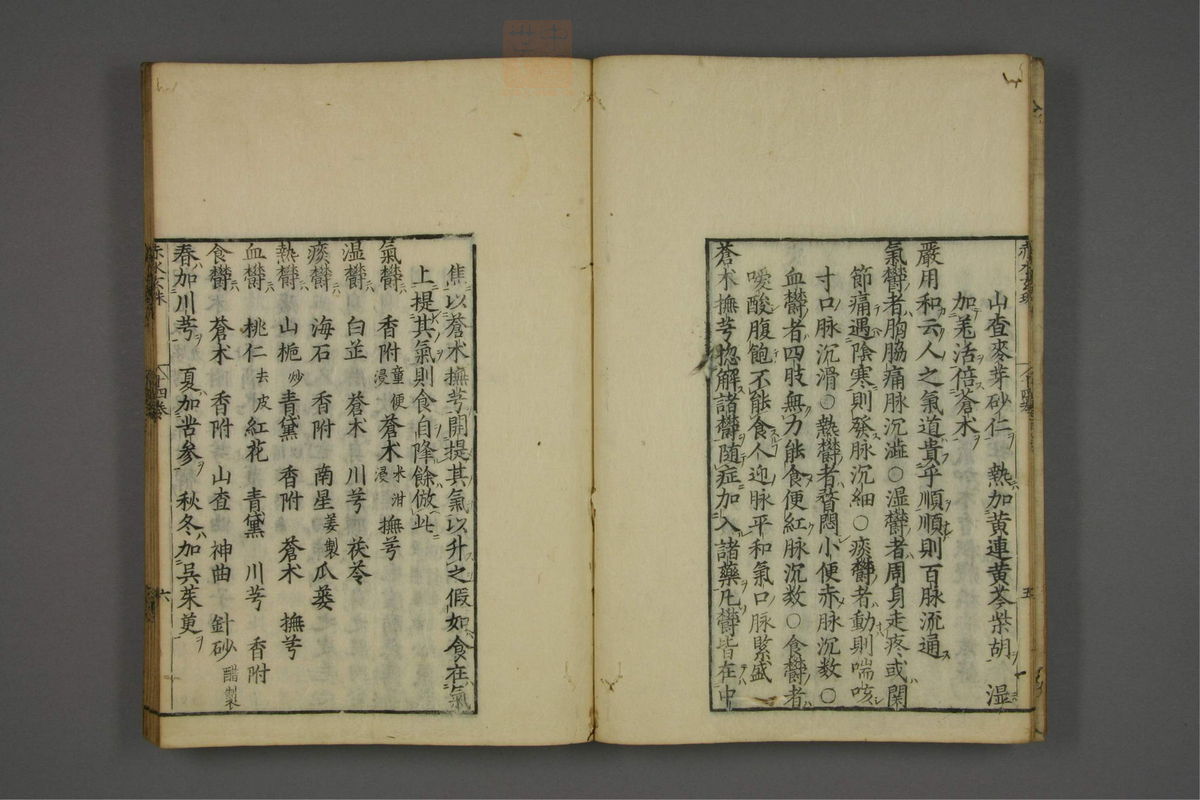 山查麥芽砂仁ヲ 熱ニハ加黃連黃芩柴胡ヲ 濕ニハ
加羌活倍蒼朮
嚴用和云人之氣道貴乎順順則百脉流通ス
氣鬱者胸脇痛脉沉澁○濕鬱者周身走疼或関
節痛遇陰寒則發脉沉細○痰鬱者動則喘咳
寸口脉沉滑○熱鬱者瞀悶小便赤脉沉数○
血鬱者四肢無力能食便紅脉沉数○食鬱者
噯酸腹飽不能食人迎脉平和氣口脉緊盛
蒼朮撫芎揔解諸鬱随症加入諸藥凡鬱皆在中
焦以蒼朮撫芎開提其氣以升之假如食在氣
上提其氣則食自降餘倣此
氣鬱ニハ 香附童便浸 蒼朮米泔浸 撫芎
湿鬱ニハ 白芷 蒼朮 川芎 茯苓
痰鬱ニハ 海石 香附 南星姜製 瓜蔞
熱鬱ニハ 山梔炒 青黛 香附 蒼朮 撫芎
血鬱ニハ 桃仁去皮 紅花 青黛 川芎 香附
食鬱ニハ 蒼朮 香附 山查 神曲 針砂醋製
春ハ加川芎ヲ 夏ハ加苦参ヲ 秋冬ハ加呉茱萸ヲ
十四卷
六
五